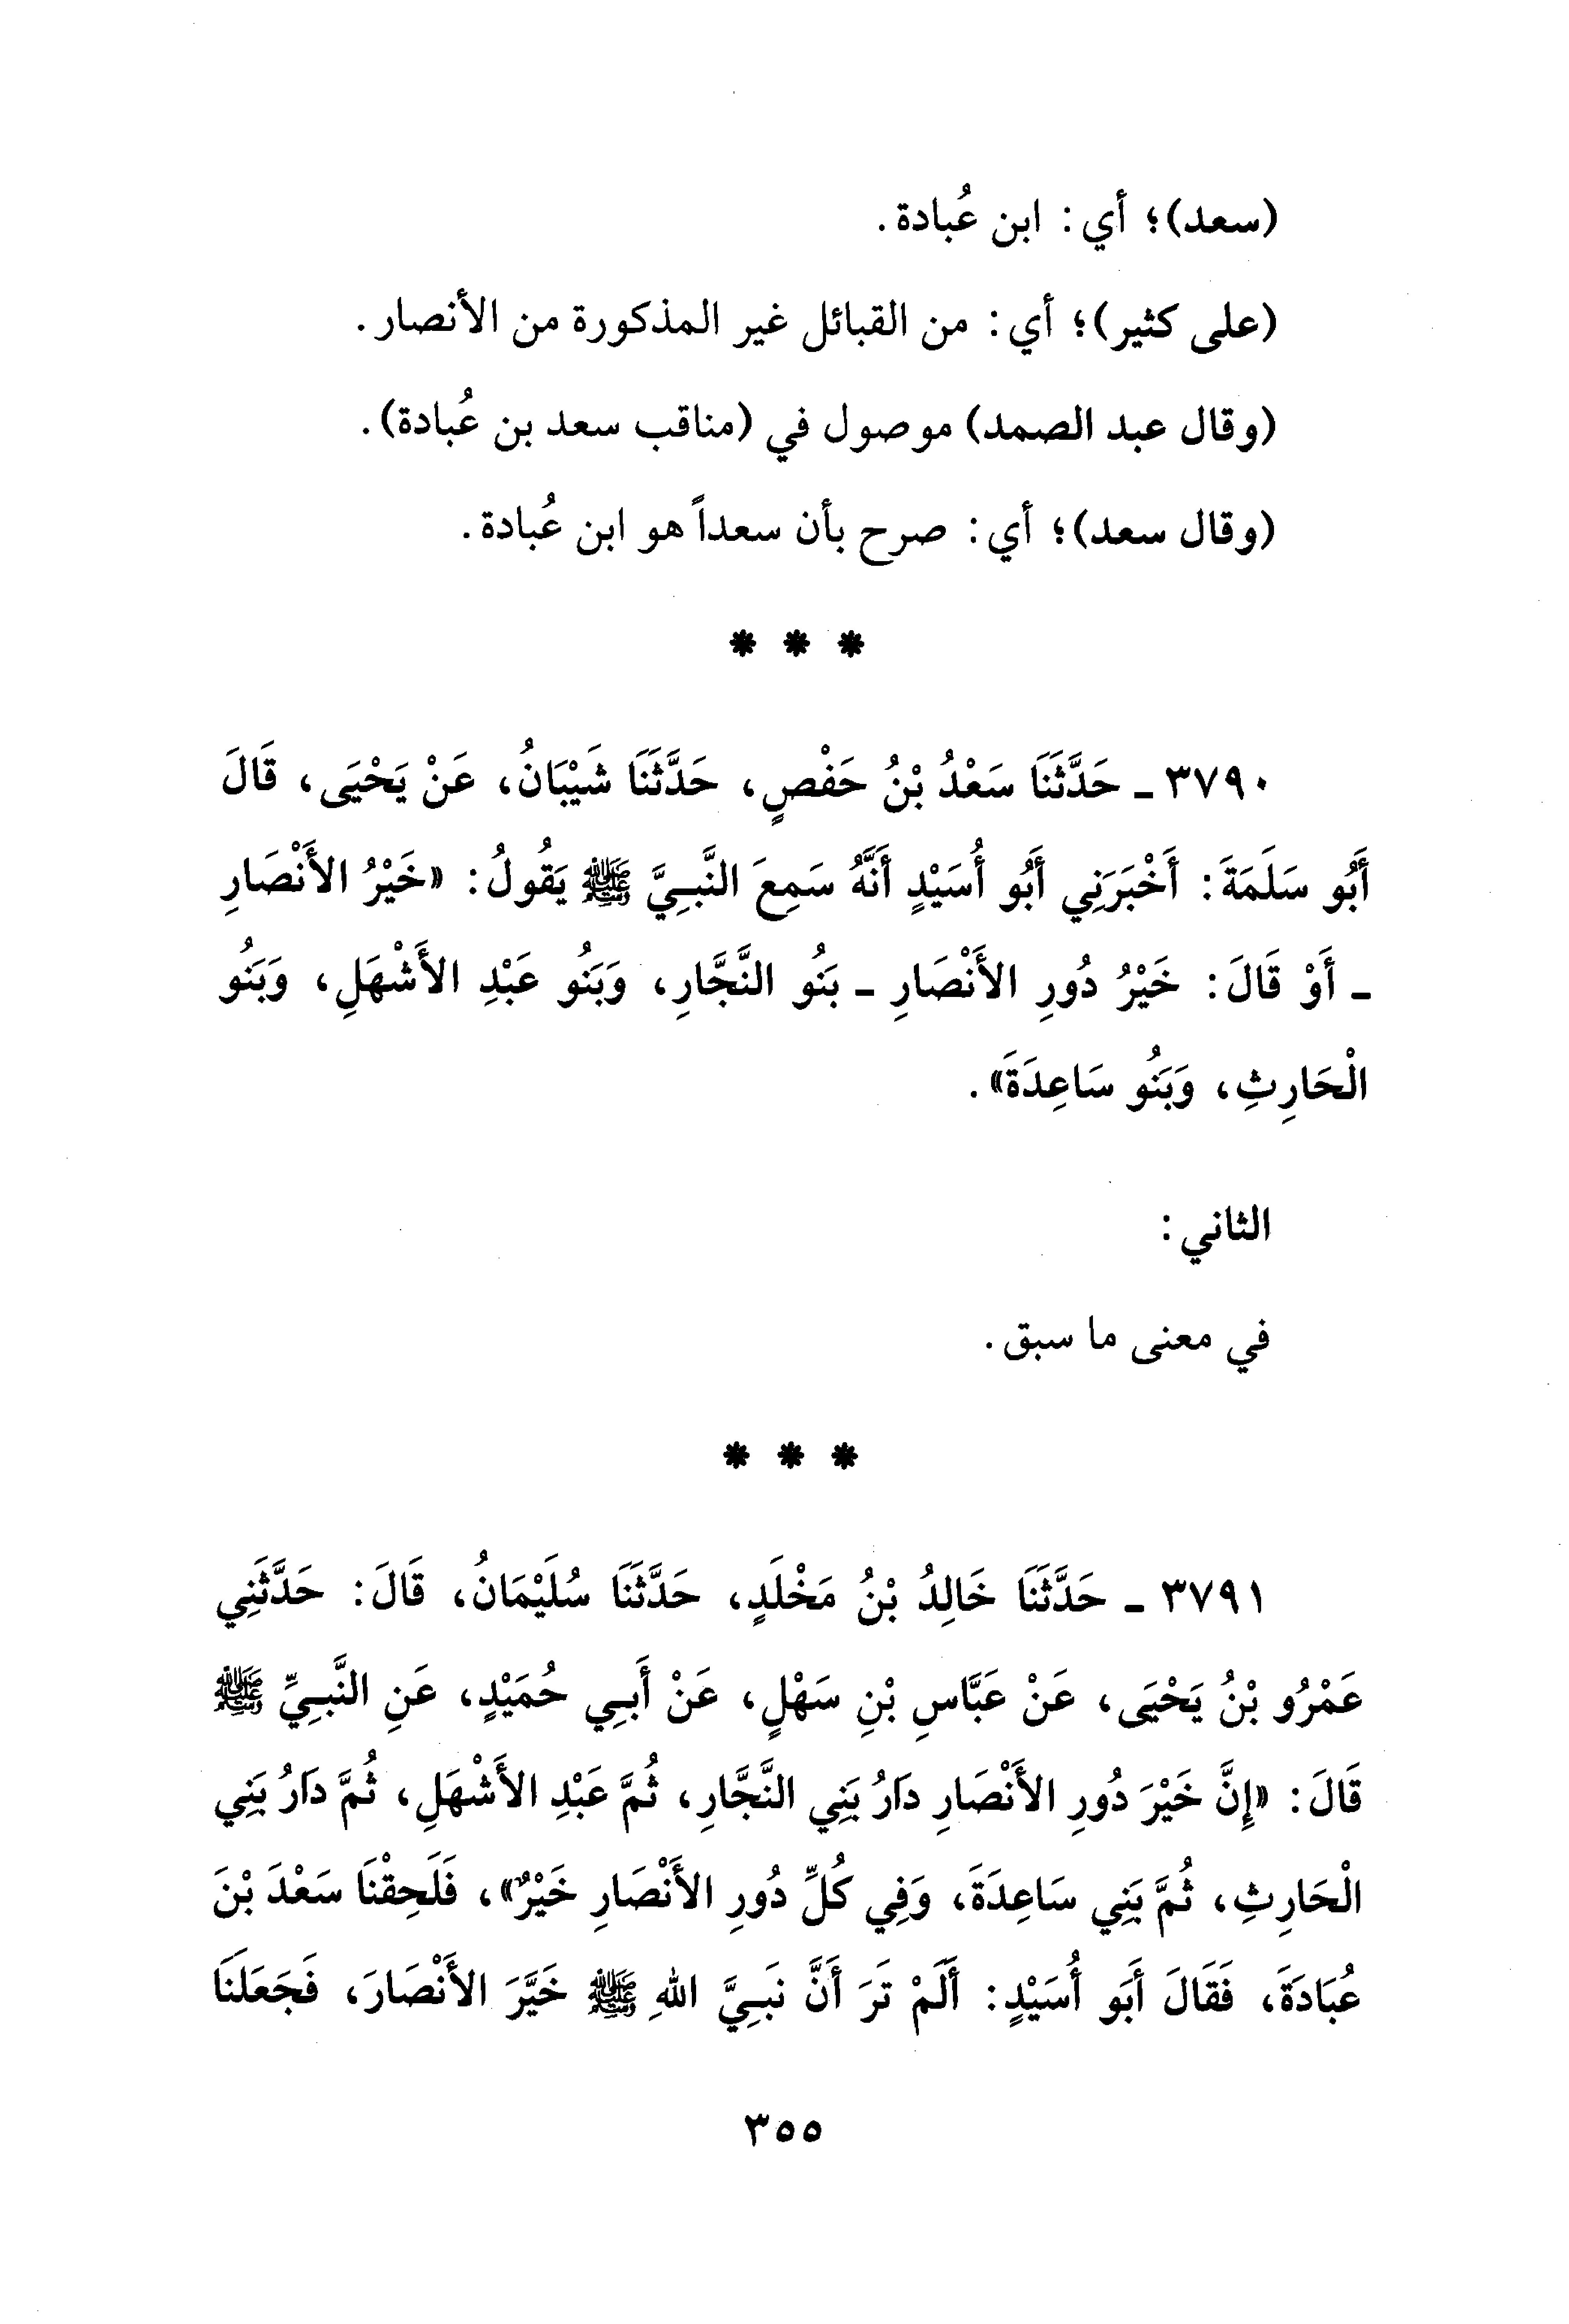 (سعد)؛ أي: ابن عُبادة.
(على كثير)؛ أي: من القبائل غير المذكورة من الأنصار.
(وقال عبد الصمد) موصول في (مناقب سعد بن عُبادة).
(وقال سعد)؛ أي: صرح بأن سعداً هو ابن عُبادة.
* * *
٣٧٩٠ ـ حَدَّثَنَا سَعْدُ بْنُ حَفْصٍ، حَدَّثَنَا شَيْبَانُ، عَنْ يَحْيَى، قَالَ
أَبُو سَلَمَةَ: أَخْبَرَنِي أَبُو أُسَيْدٍ أَنَّهُ سَمِعَ النَّبِيَّ ﷺ يَقُولُ: «خَيْرُ الأَنْصَارِ
ـ أَوْ قَالَ: خَيْرُ دُورِ الأَنْصَارِ ـ بَنُو النَّجَّارِ، وَبَنُو عَبْدِ الأَشْهَلِ، وَبَنُو
الْحَارِثِ، وَبَنُو سَاعِدَةَ».
الثاني:
في معنى ما سبق.
* * *
٣٧٩١ ـ حَدَّثَنَا خَالِدُ بْنُ مَخْلَدٍ، حَدَّثَنَا سُلَيْمَانُ، قَالَ: حَدَّثَنِي
عَمْرُو بْنُ يَحْيَى، عَنْ عَبَّاسِ بْنِ سَهْلٍ، عَنْ أَبِي حُمَيْدٍ، عَنِ النَّبِيِّ ﷺ
قَالَ: «إِنَّ خَيْرَ دُورِ الأَنْصَارِ دَارُ بَنِي النَّجَّارِ، ثُمَّ عَبْدِ الأَشْهَلِ، ثُمَّ دَارُ بَنِي
الْحَارِثِ، ثُمَّ بَنِي سَاعِدَةَ، وَفِي كُلِّ دُورِ الأَنْصَارِ خَيْرٌ»، فَلَحِقْنَا سَعْدَ بْنَ
عُبَادَةَ، فَقَالَ أَبَو أُسَيْدٍ: أَلَمْ تَرَ أَنَّ نَبِيَّ اللهِ ﷺ خَيَّرَ الأَنْصَارَ، فَجَعَلَنَا
٣٥٥